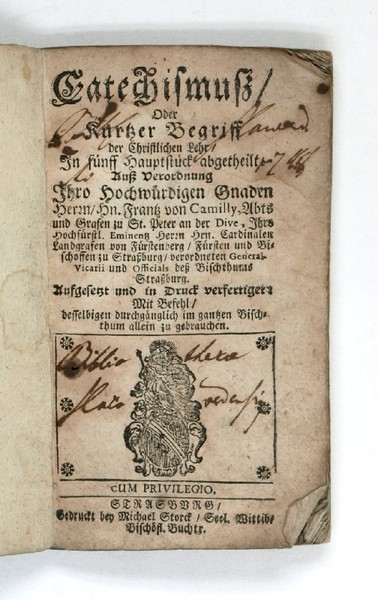 Catechismuß/
Oder
Kurtzer Begriff
der Christlichen Lehr/
In fünff Hauptstück abgetheilt/
Auß Verordnung
Ihro Hochwürdigen Gnaden
Herrn/ Hn. Frantz von Camilly, Abts
und Grafen zu St. Peter an der Dive, Ihro
Hochfürstl. Eminentz Herrn Hrn. Cardinalen
Landgrafen von Fürstenberg/ Fürsten und Bi-
schoffen zu Straßburg/ verordneten General-
Vicarii und Officials deß Bischthums
Straßburg.
Aufgesetzt und in Druck verfertiget:
Mit Befehl/
desselbigen durchgänglich im gantzen Bisch-
thum allein zu gebrauchen.
Biblio theca
CUM PRIVILEGIO.
STRASBURG/
Gedruckt bey Michael Storck/ Seel. Wittib/
Bischöfl. Buchtr.